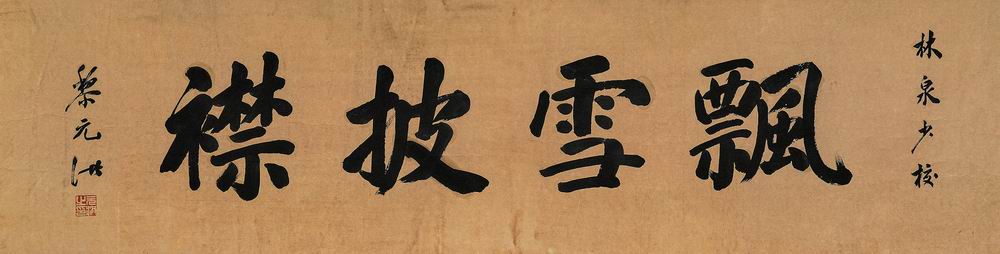 林泉少校
飄雪披襟
黎元洪